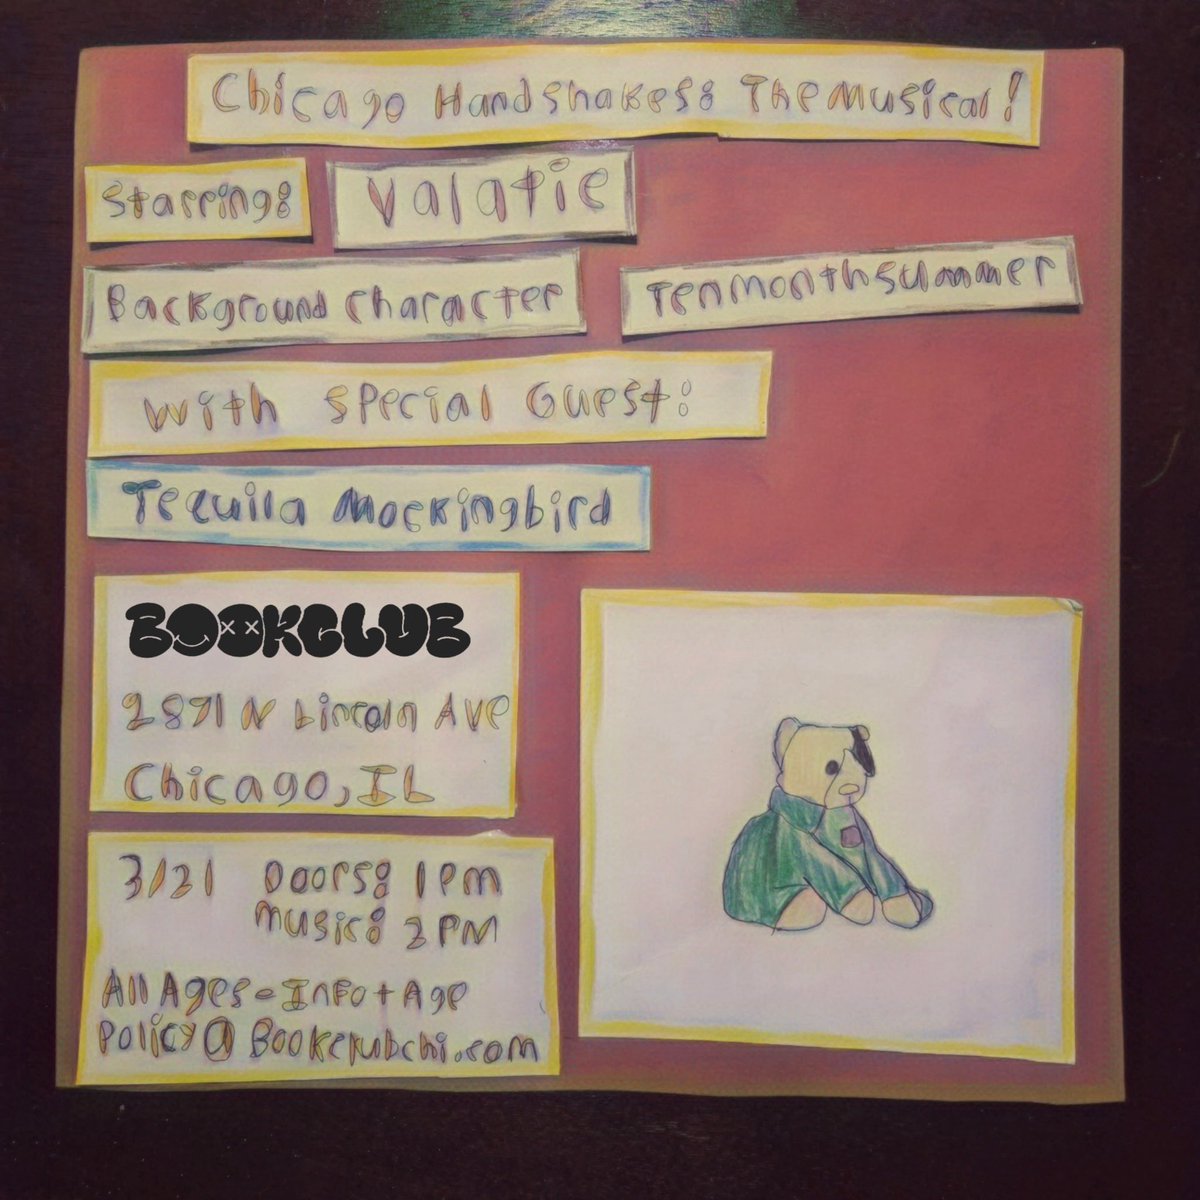 Chicago Handshakes: The Musical!
Starring: Valatie
Background Character Tenmonthsummer
With Special Guest:
Tequila Mockingbird
BOOKCLUB
2871 N Lincoln Ave
Chicago, IL
3/21 Doors: 1PM
Music: 2PM
All Ages - Info + Age
Policy @ Bookclubchi.com